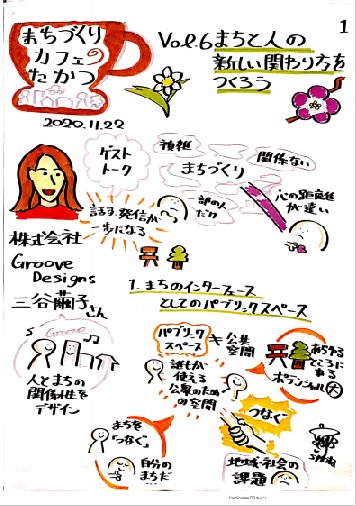 1
まちづくり
カフェの
たかつ
2020.11.22
Vol.6 まちと人の
新しい関わり方を
つくろう
ゲスト
トーク
複雑
まちづくり
関係ない
一部の人
だけ
心の距離
が遠い
話す、発信が
一歩になる
株式会社
Groove
Designs
三谷繭子さん
Groove
人とまちの
関係性を
デザイン
1. まちのインターフェース
としてのパブリックスペース
パブリック
スペース
≠
公共
空間
誰もが
使える
公衆のため
の空間
あらゆる
ところに
ある
ポテンシャル大
つなぐ
まちを
つなぐ。
自分の
まちだ
地域・社会の
課題